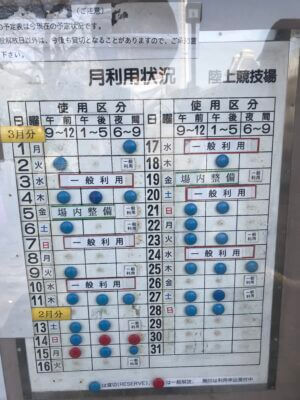 の予定表は今現在の予定状況です。
月利用状況 陸上競技場
日 曜 使用区分
午前 9～12 午後 1～5 夜間 6～9
3月分
1 月
2 火 一般利用
3 水 一般利用
4 木
5 金 場内整備 一般利用
6 土
7 日 一般利用
8 月
9 火 一般利用
10 水 一般利用
11 木
2月分
13 土
14 日
15 月
16 火
日 曜 使用区分
午前 9～12 午後 1～5 夜間 6～9
17 水 一般利用
18 木
19 金 場内整備 一般利用
20 土
21 日
22 月
23 火
24 水 一般利用
25 木
26 金 一般利用
27 土
28 日
29
30
31
は貸切(RESERVE)、 は一般解放、